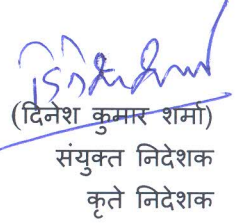 (दिनेश कुमार शर्मा)
संयुक्त निदेशक
कृते निदेशक